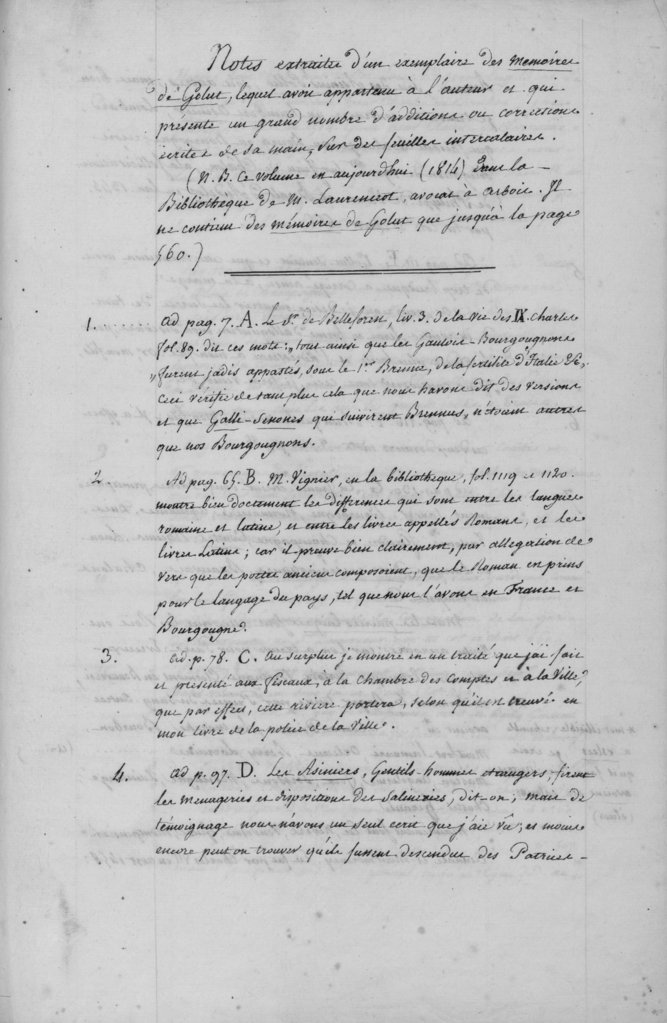 Notes extraites d'un exemplaire des Mémoires
de Golut, lequel avoit appartenu à l'auteur et qui
présente un grand nombre d'additions ou corrections
écrites de sa main, sur des feuilles intercalaires.
(N. B. Ce volume est aujourdhui (1814) dans la
Bibliothèque de M. Laurenceot, avocat à Arbois. Il
ne contient des mémoires de Golut que jusqu'à la page
560.)
1. ad pag. 7. A. Le Sr. de Belleforest, liv. 3. de la vie des IX. Charles
fol. 89. dit ces mots: „tous ainsi que les Gaulois-Bourgougnons
„furent jadis appastés, sous le 1er Brenne, de la fertilité d'Italie &c,
Ceci vérifie de tant plus cela que nous havons dit des versions
et que Galli-Senones qui suivirent Brennus, n'étoient autres
que nos Bourgougnons.
2. Ad pag. 65. B. M. Vignier, en la bibliothèque, fol. 1119 et 1120.
montre bien doctement les différences qui sont entre les langues
romaine et latine, et entre les livres appellés Romans, et les
livres Latins; car il preuve bien clairement, par allegation de
vers que les poetes anciens composoient, que le Roman en prins
pour le langage du pays, tel que nous l'avons en France et
Bourgougne.
3. ad. p. 78. C. au surplus je montre en un traité que j'ai fait
et présenté aux fiscaux, à la chambre des Comptes et à la Ville,
que par effect, cette rivière portera, selon qu'il est treuvé en
mon livre de la police de la Ville.
4. ad p. 97. D. Les Asiniers, Gentils-hommes etrangers, firent
les menageries et dispositions des Salineries, dit-on; mais de
témoignage nous n'avons un seul ecrit que j'aie vû; et moins
encore peut on trouver qu'ils fussent descendus des Patries-